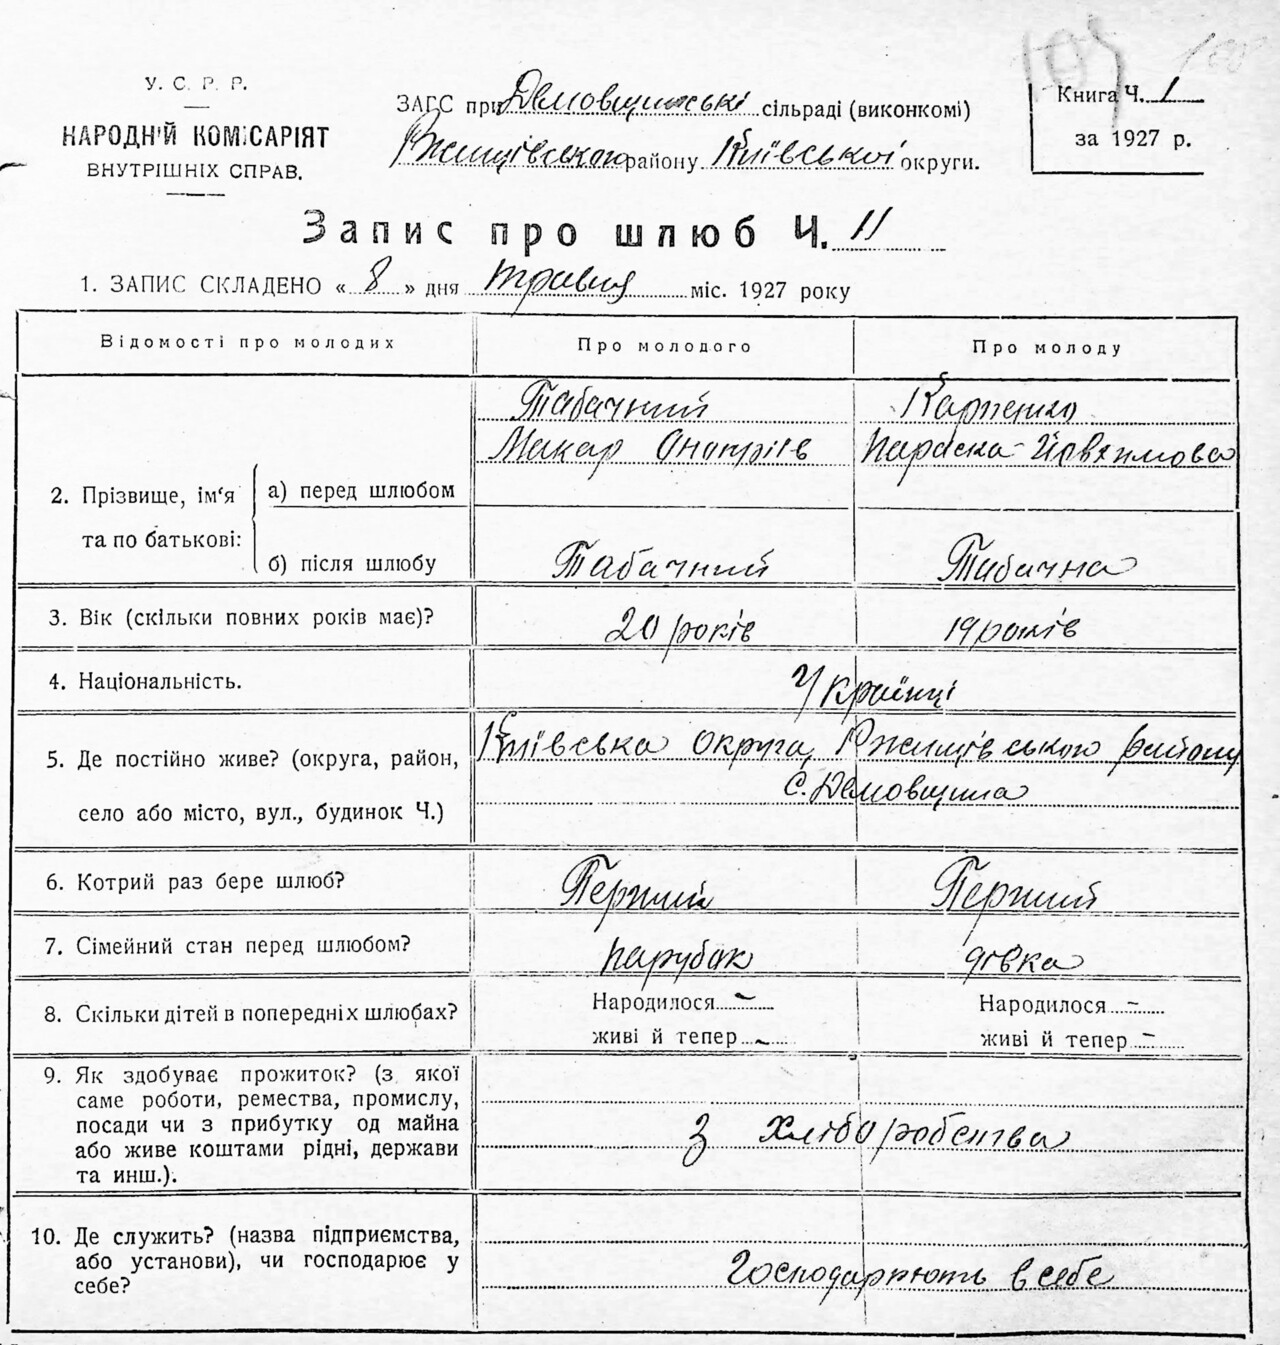 У. С. Р. Р.
НАРОДНІЙ КОМІСАРІЯТ
ВНУТРІШНІХ СПРАВ.
ЗАГС при Демовщинські сільраді (виконкомі)
Ржищівського району Київської округи.
Книга Ч. 1
за 1927 р.
Запис про шлюб Ч. 11
1. ЗАПИС СКЛАДЕНО « 8 » дня травня міс. 1927 року
Відомості про молодих
Про молодого
Про молоду
2. Прізвище, ім‘я та по батькові:
а) перед шлюбом
Табачний
Макар Онопріїв
Карпенко
Параска Йовхимова
б) після шлюбу
Табачний
Табачна
3. Вік (скільки повних років має)?
20 років
19 років
4. Національність.
Українці
5. Де постійно живе? (округа, район,
село або місто, вул., будинок Ч.)
Київська округа, Ржищівського району
с. Демовщина
6. Котрий раз бере шлюб?
Перший
Перший
7. Сімейний стан перед шлюбом?
парубок
дівка
8. Скільки дітей в попередніх шлюбах?
Народилося -
живі й тепер -
Народилося -
живі й тепер -
9. Як здобуває прожиток? (з якої
саме роботи, ремества, промислу,
посади чи з прибутку од майна
або живе коштами рідні, держави
та инш.).
З хліборобства
10. Де служить? (назва підприємства,
або установи), чи господарює у
себе?
Господарюють в себе